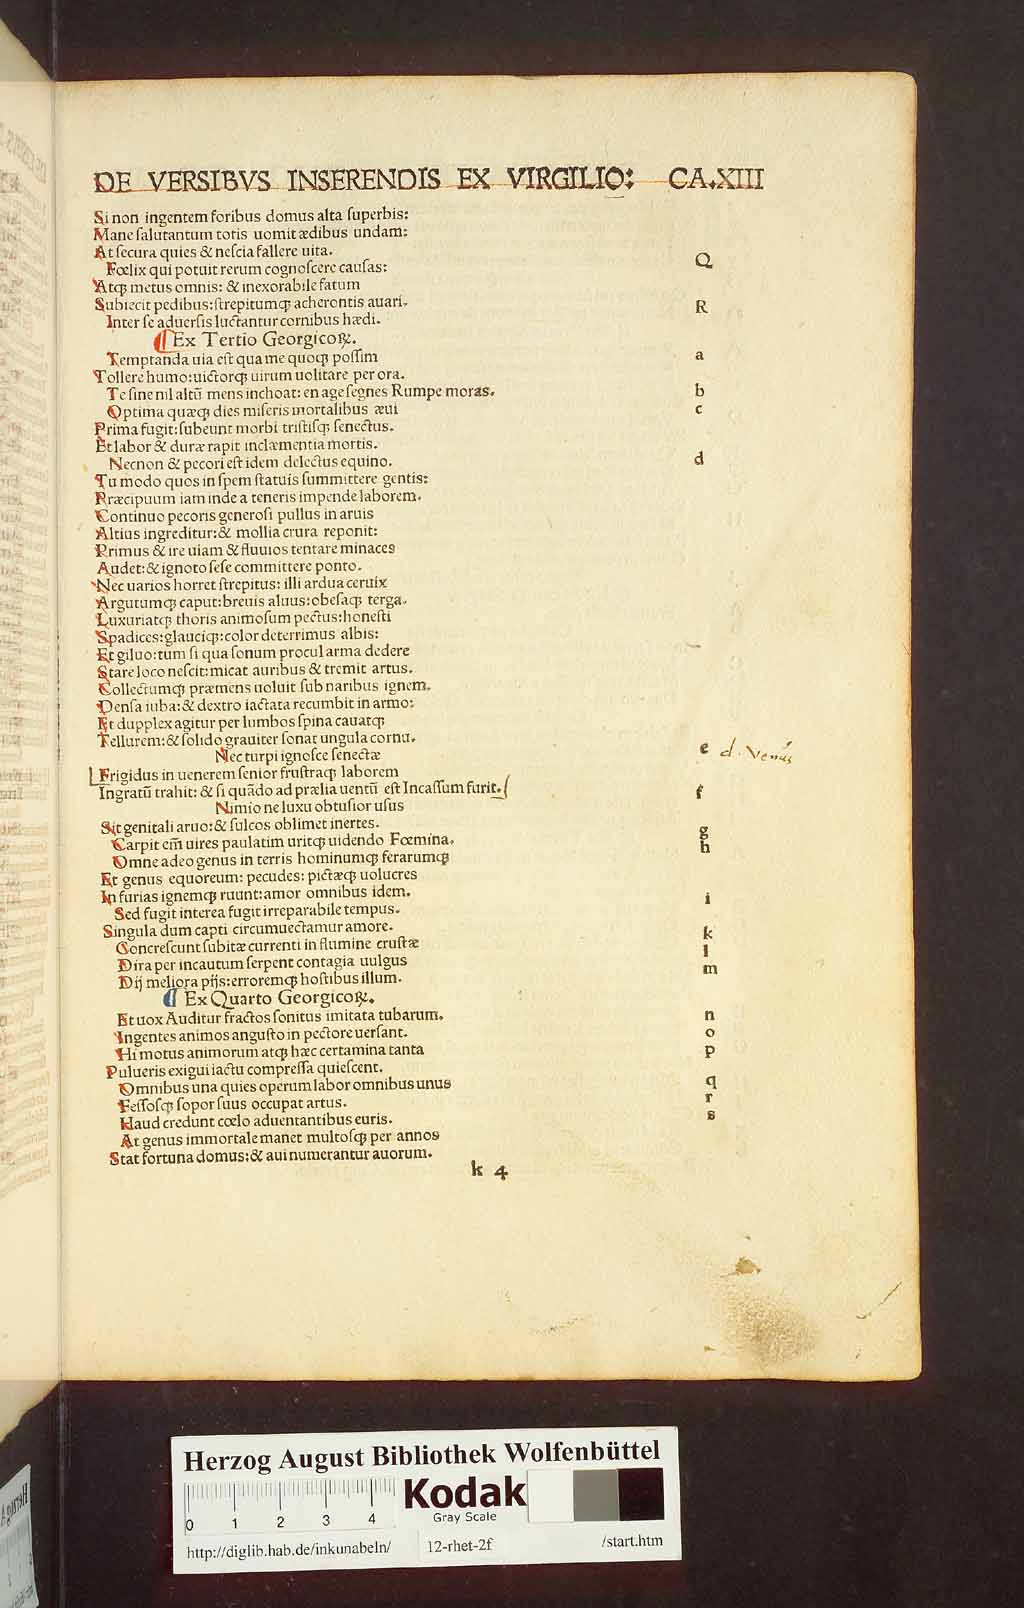 DE VERSIBVS INSERENDIS EX VIRGILIO: CA.XIII
Si non ingentem foribus domus alta ſuperbis:
Mane ſalutantum totis uomit ædibus undam:
At ſecura quies & neſcia fallere uita.
Fœlix qui potuit rerum cognoſcere cauſas: Q
Atqꝫ metus omnis: & inexorabile fatum
Subiecit pedibus: ſtrepitumqꝫ acherontis auari. R
Inter ſe aduerſis luctantur cornibus hædi.
¶ Ex Tertio Georgicoꝝ.
Temptanda uia eſt qua me quoqꝫ poſſim a
Tollere humo: uictorqꝫ uirum uolitare per ora.
Te ſine nil altū mens inchoat: en age ſegnes Rumpe moras. b
Optima quæqꝫ dies miſeris mortalibus æui c
Prima fugit: ſubeunt morbi triſtiſqꝫ ſenectus.
Et labor & duræ rapit inclæmentia mortis.
Necnon & pecori eſt idem delectus equino. d
Tu modo quos in ſpem ſtatuis ſummittere gentis:
Præcipuum iam inde a teneris impende laborem.
Continuo pecoris generoſi pullus in aruis
Altius ingreditur: & mollia crura reponit:
Primus & ire uiam & fluuios tentare minaces
Audet: & ignoto ſeſe committere ponto.
Nec uarios horret ſtrepitus: illi ardua ceruix
Argutumqꝫ caput: breuis aluus: obeſaqꝫ terga.
Luxuriatqꝫ thoris animoſum pectus: honeſti
Spadices: glauciqꝫ: color deterrimus albis:
Et giluo: tum ſi qua ſonum procul arma dedere
Stare loco neſcit: micat auribus & tremit artus.
Collectumqꝫ præmens uoluit ſub naribus ignem.
Denſa iuba: & dextro iactata recumbit in armo:
Et dupplex agitur per lumbos ſpina cauatqꝫ
Tellurem: & ſolido grauiter ſonat ungula cornu.
Nec turpi ignoſce ſenectæ e d. Venus
Frigidus in uenerem ſenior fruſtraqꝫ laborem
Ingratū trahit: & ſi quādo ad prælia uentū eſt Incaſſum furit. f
Nimio ne luxu obtuſior uſus
Sit genitali aruo: & ſulcos oblimet inertes. g
Carpit em̄ uires paulatim uritqꝫ uidendo Fœmina. h
Omne adeo genus in terris hominumqꝫ ferarumqꝫ
Et genus equoreum: pecudes: pictæqꝫ uolucres
In furias ignemqꝫ ruunt: amor omnibus idem. i
Sed fugit interea fugit irreparabile tempus.
Singula dum capti circumuectamur amore. k
Concreſcunt ſubitæ currenti in flumine cruſtæ l
Dira per incautum ſerpent contagia uulgus m
Dij meliora pijs: erroremqꝫ hoſtibus illum.
¶ Ex Quarto Georgicoꝝ.
Et uox Auditur fractos ſonitus imitata tubarum. n
Ingentes animos anguſto in pectore uerſant. o
Hi motus animorum atqꝫ hæc certamina tanta p
Pulueris exigui iactu compreſſa quieſcent.
Omnibus una quies operum labor omnibus unus q
Feſſoſqꝫ ſopor ſuus occupat artus. r
Haud credunt cœlo aduentantibus euris. s
At genus immortale manet multoſqꝫ per annos
Stat fortuna domus: & aui numerantur auorum.
k 4
Herzog August Bibliothek Wolfenbüttel
0 1 2 3 4
Kodak
Gray Scale
http://diglib.hab.de/inkunabeln/ 12-rhet-2f /start.htm